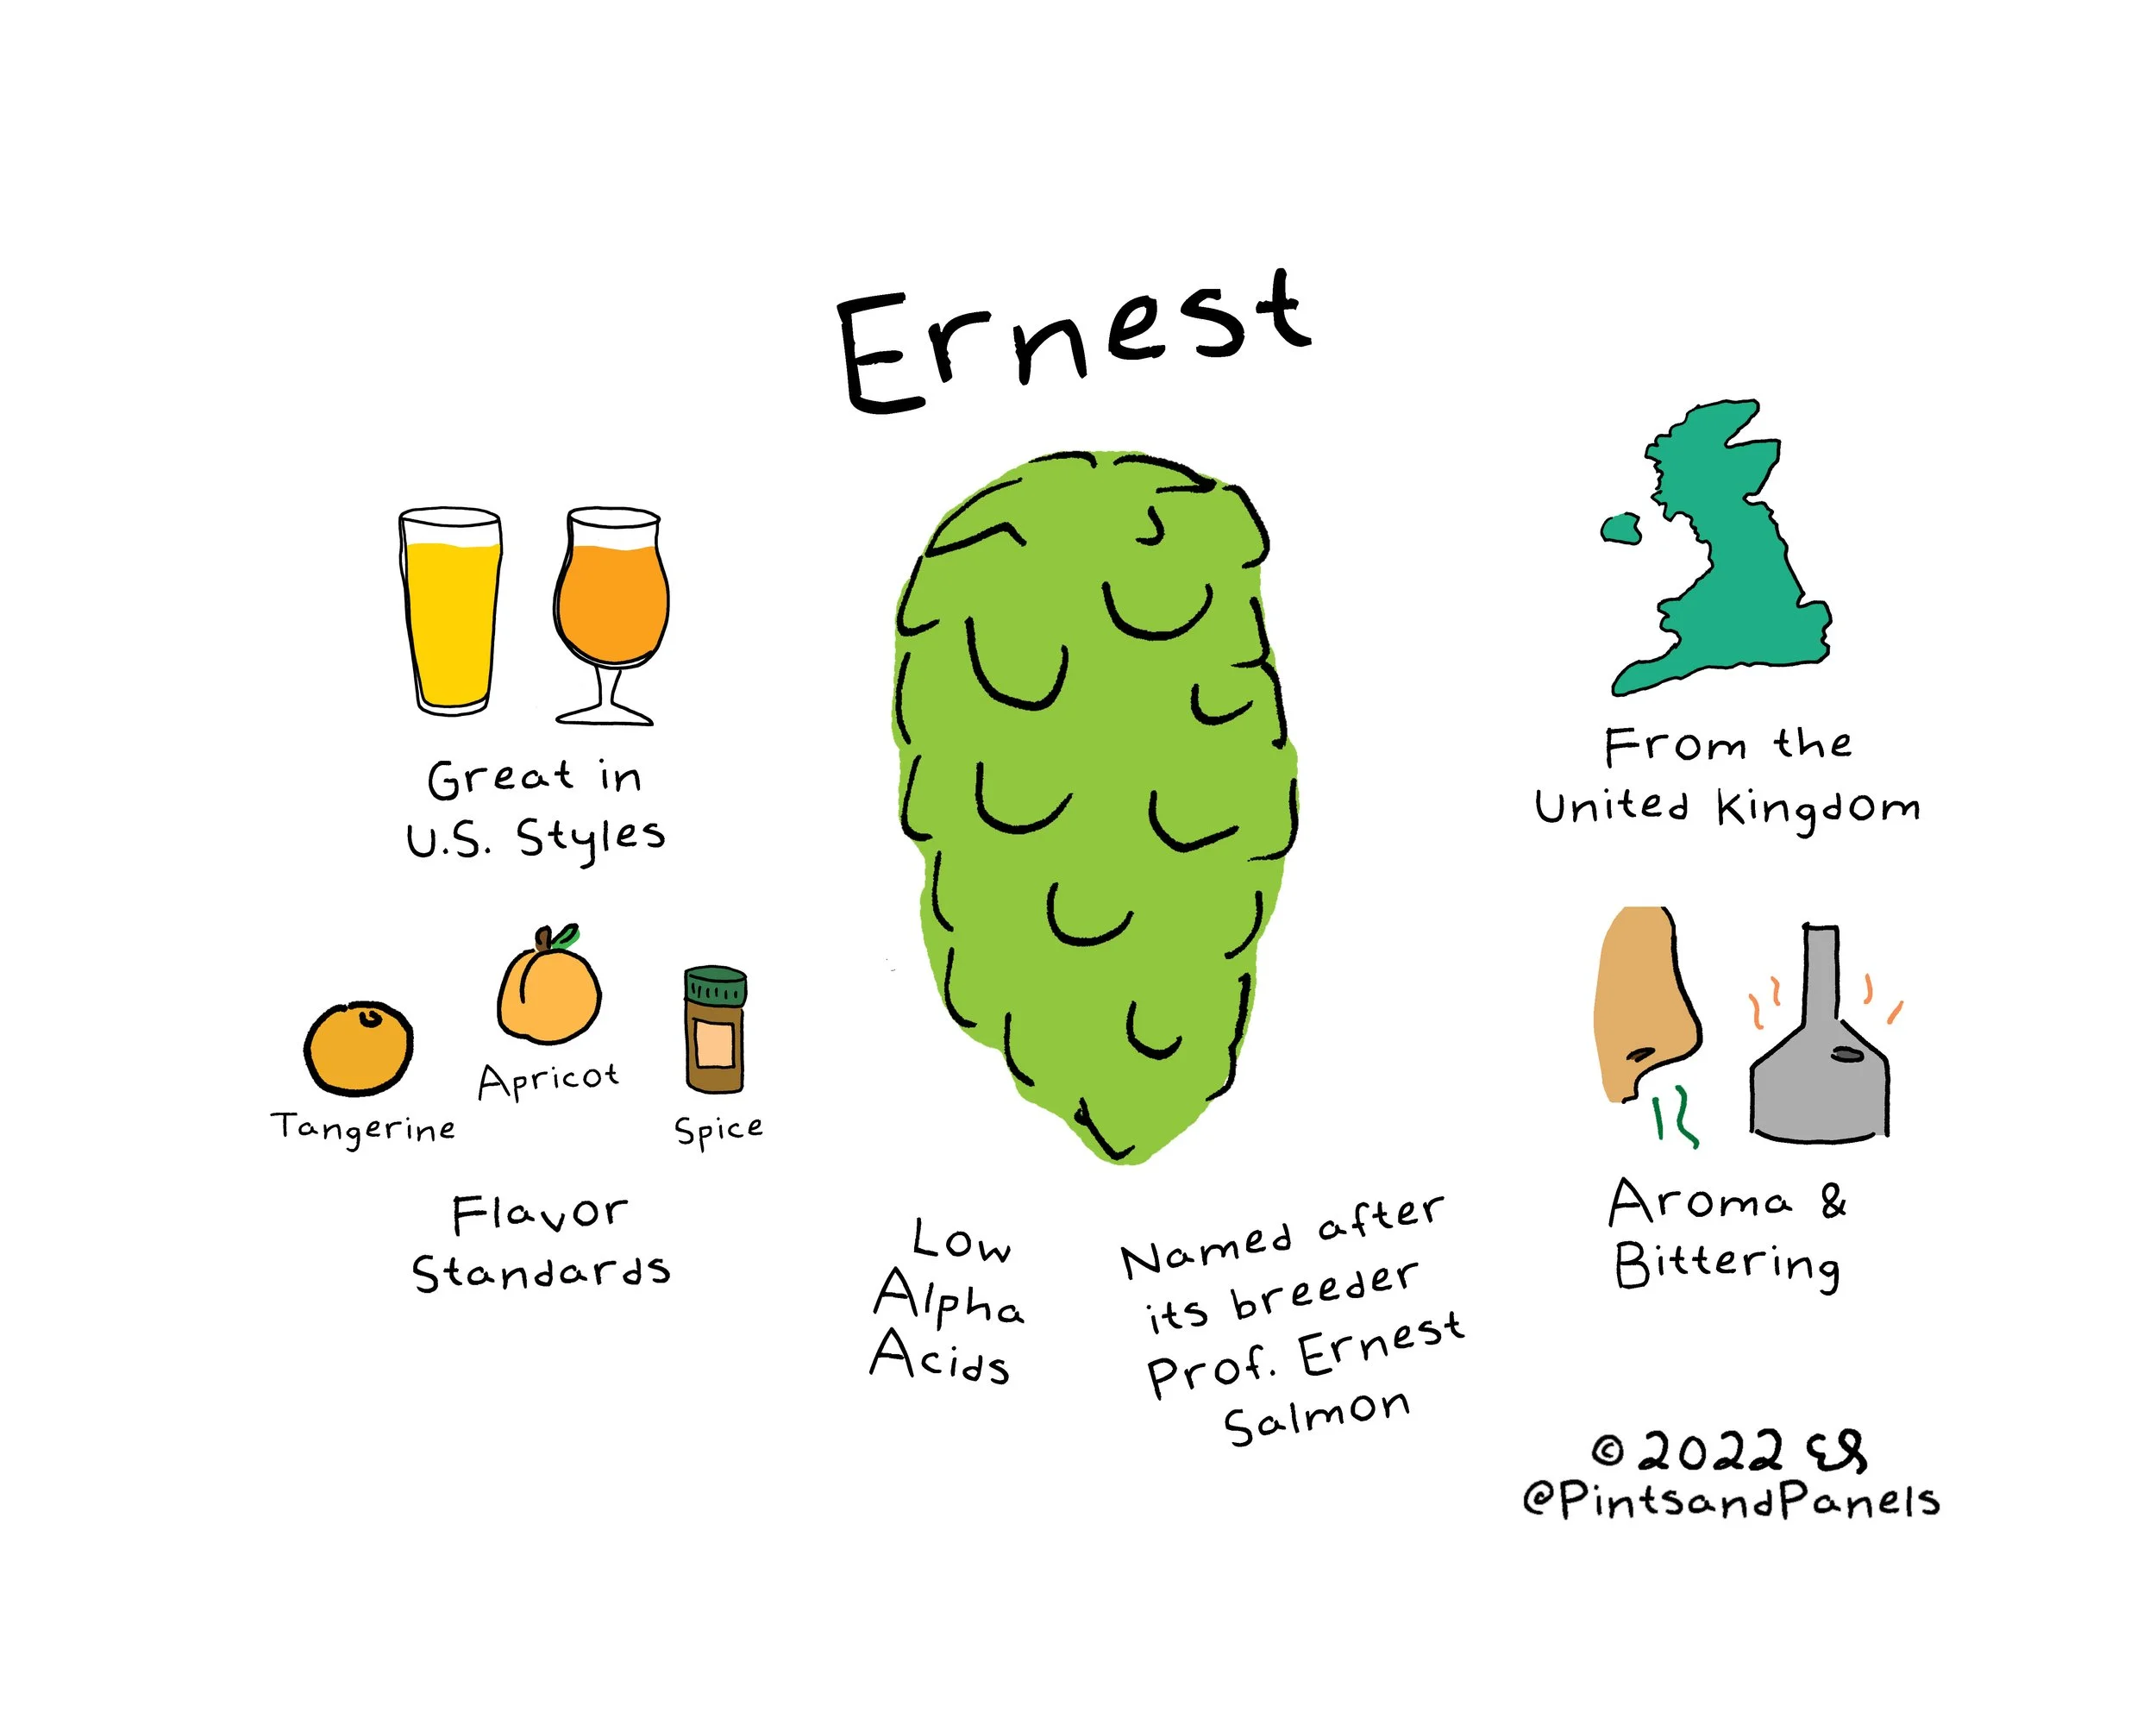 Ernest
Great in
U.S. Styles
Tangerine
Apricot
Spice
Flavor
Standards
Low
Alpha
Acids
Named after
its breeder
Prof. Ernest
Salmon
From the
United Kingdom
Aroma &
Bittering
© 2022 ES
@PintsandPanels